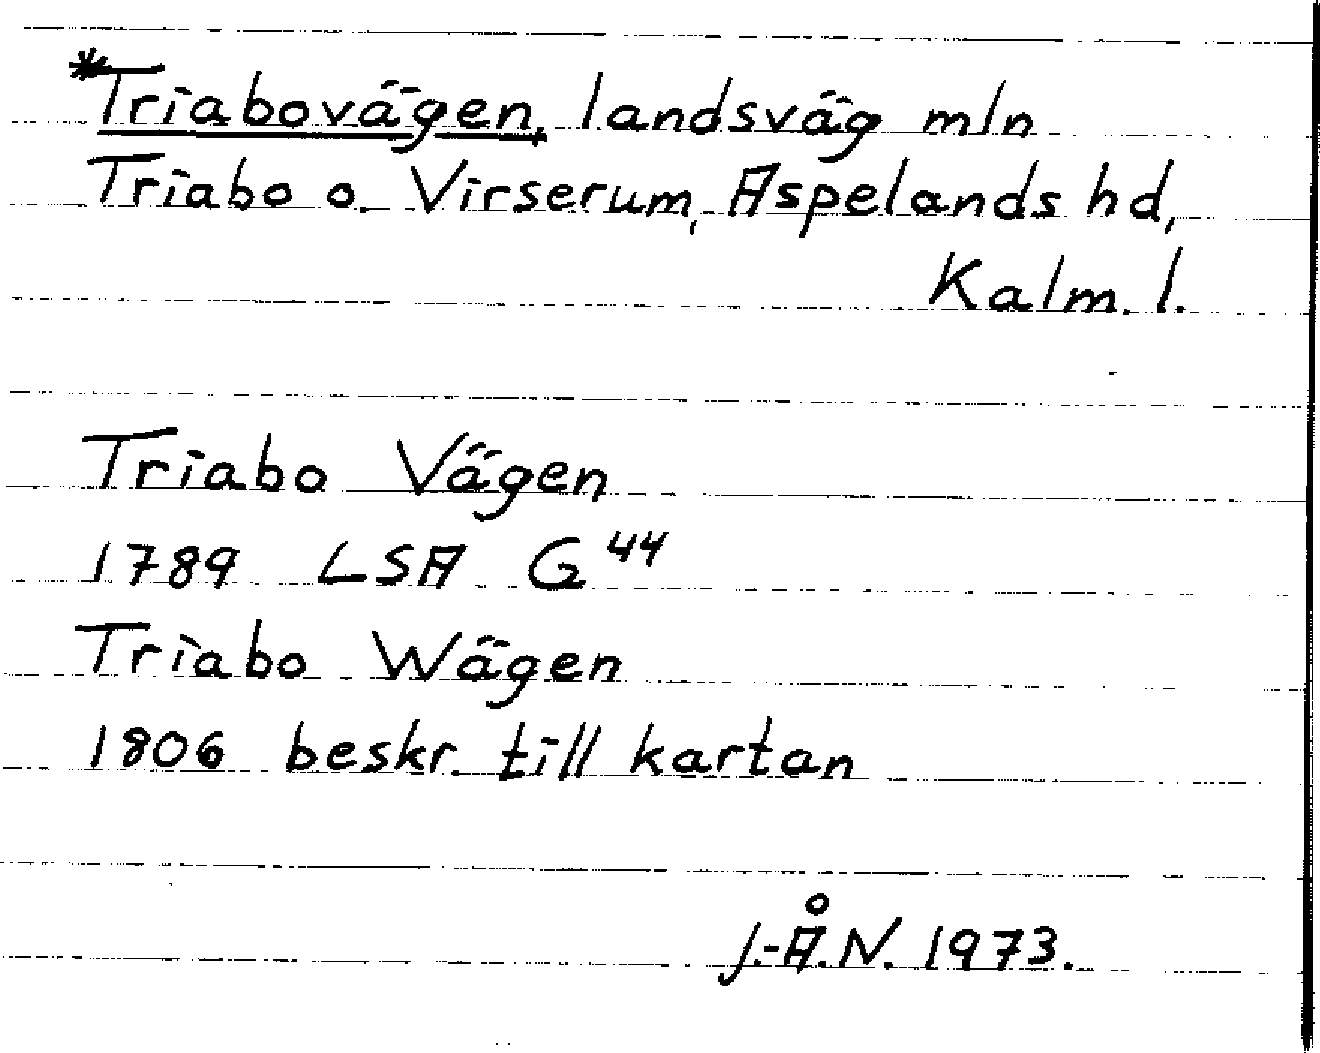 *Triabovägen, landsväg mln
Triabo o. Virserum, Aspelands hd,
Kalm. l.
Triabo Vägen
1789 LSA G 44
Triabo Wägen
1806 beskr. till kartan
J.-Å.N. 1973.